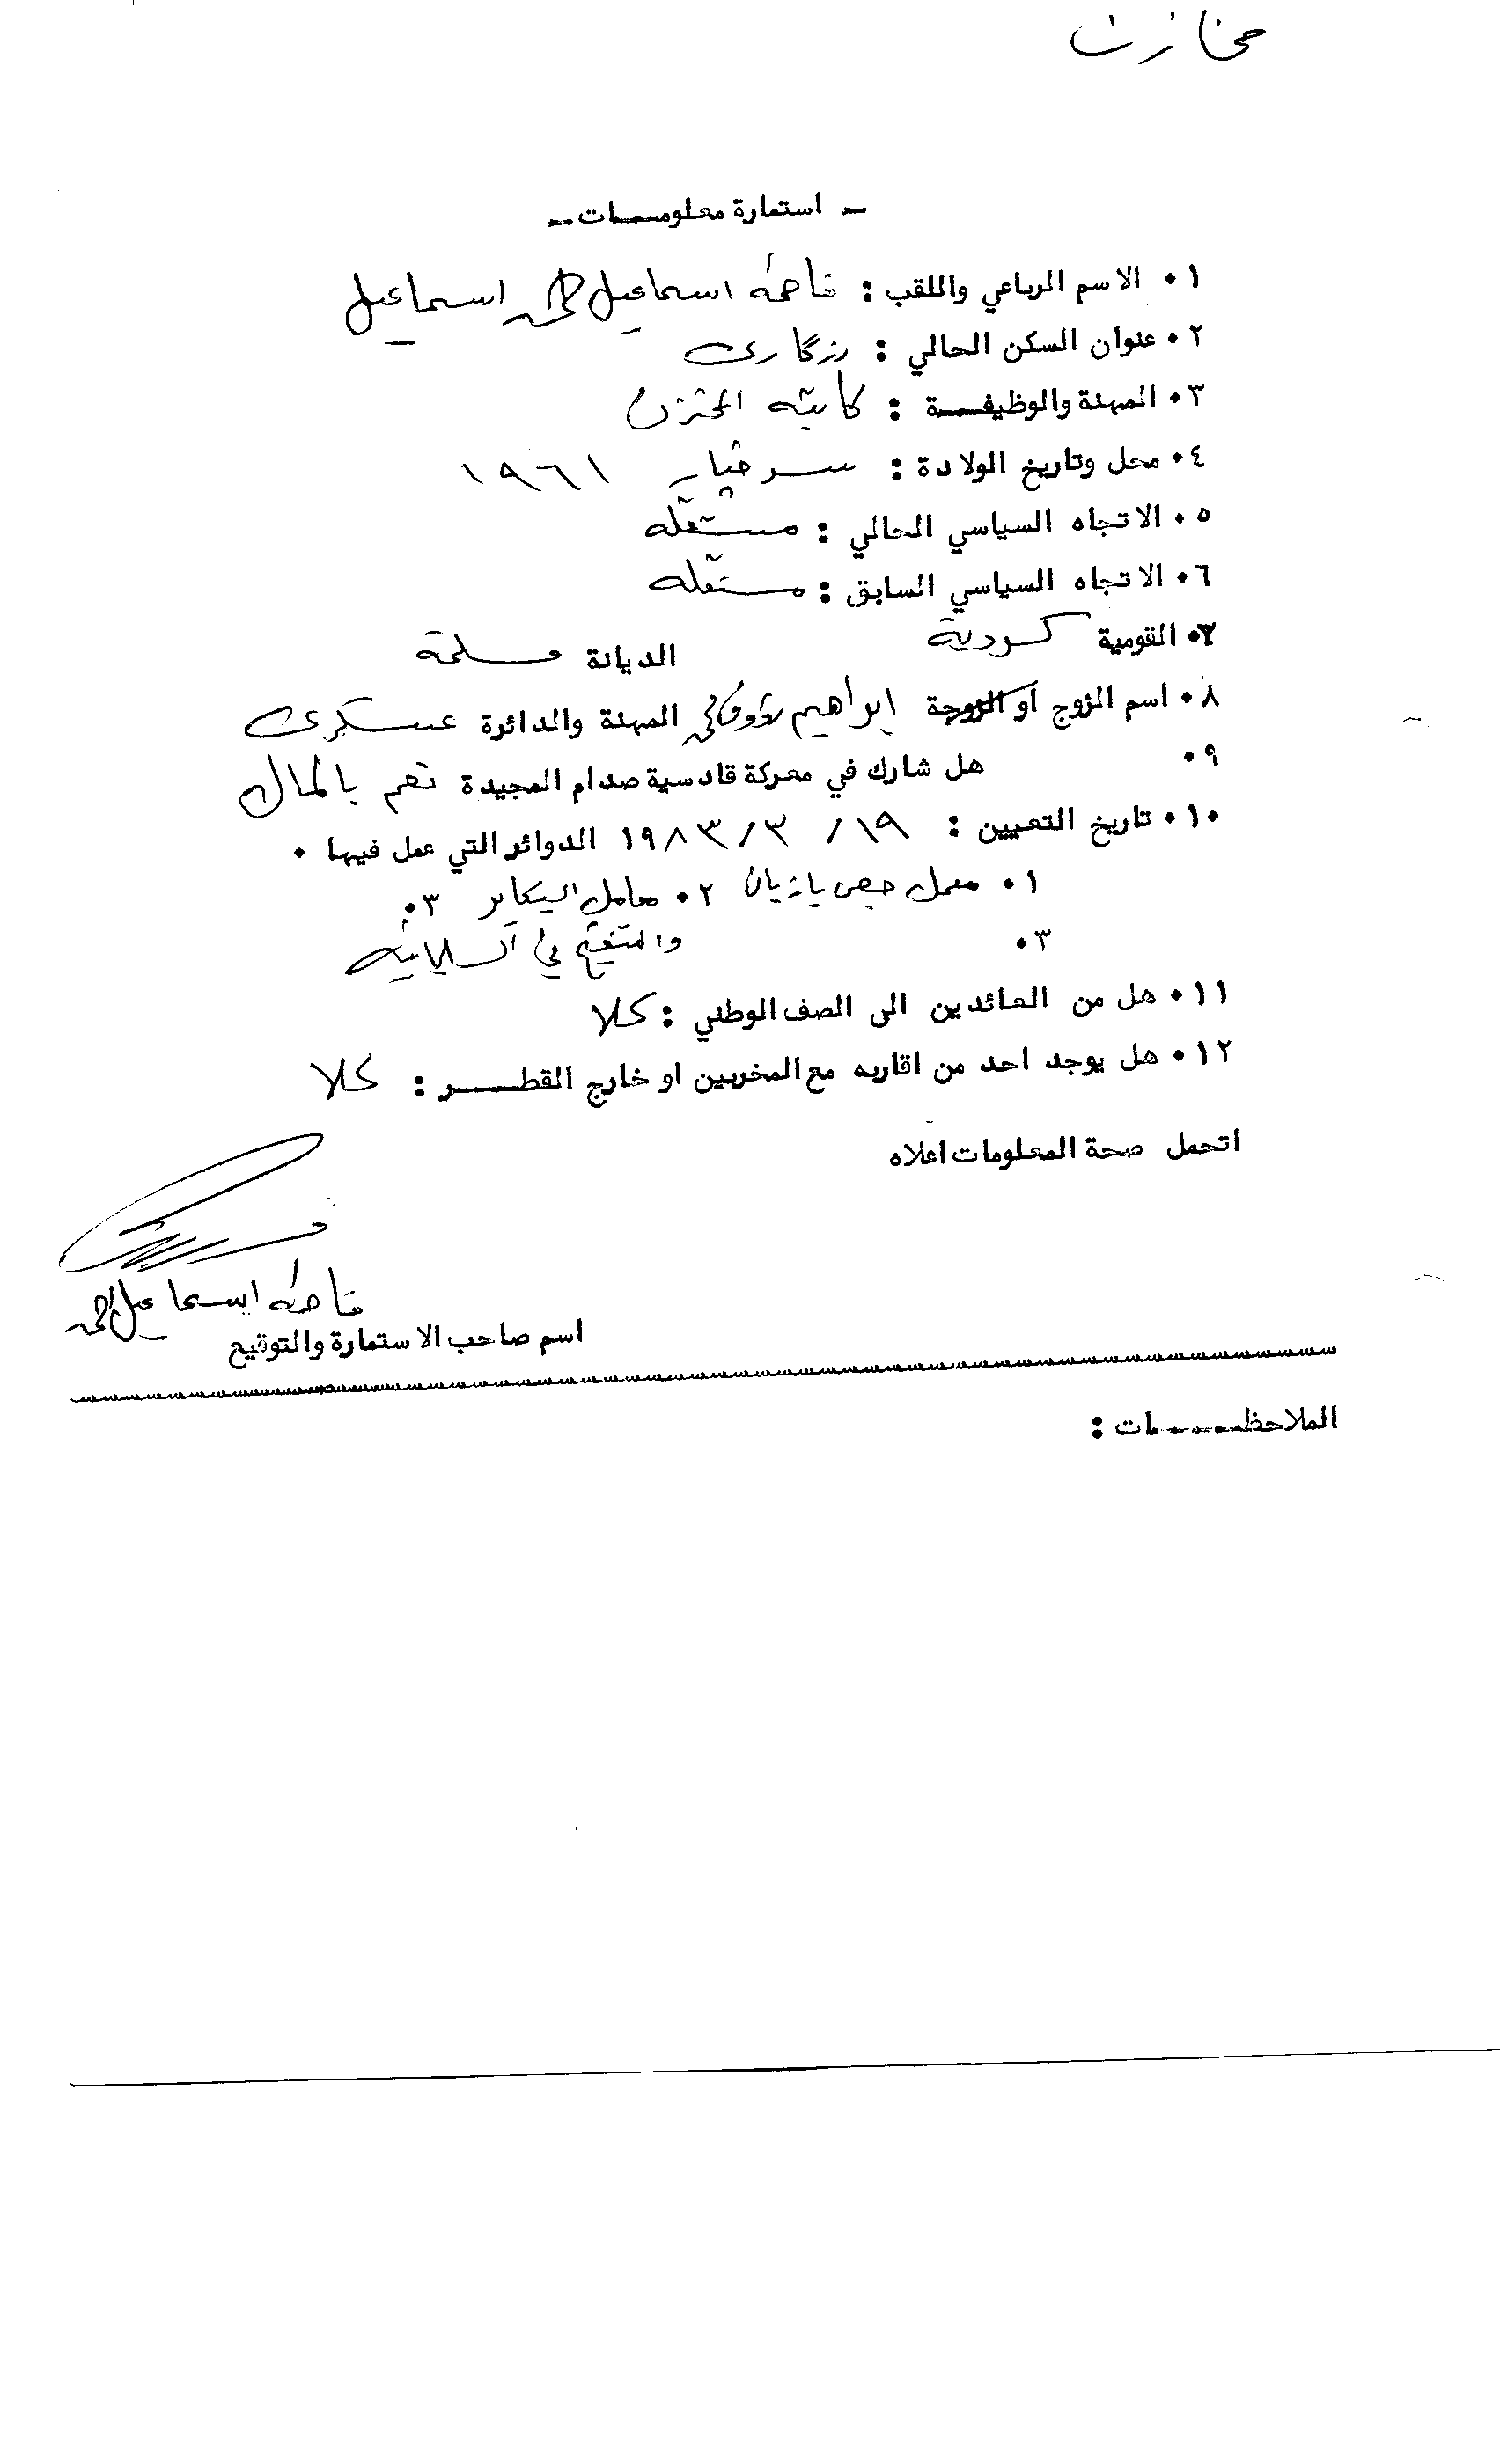 مخازن
ـ استمارة معلومـــات ــ
١٠ الاسم الرباعي واللقب : فاطمة اسماعيل اسماعيل
٢٠ عنوان السكن الحالي : رزگاري
٣٠ المهنة والوظيفـــة : كاتبة المخزن
٤٠ محل وتاريخ الولادة : سرچنار ١٩٦١
٥٠ الاتجاه السياسي الحالي : مستقلة
٦٠ الاتجاه السياسي السابق : مستقلة
٧٠ القومية كردية الديانة مسلمة
٨٠ اسم الزوج او الزوجة ابراهيم رؤوف المهنة والدائرة عسكري
٩٠ هل شارك في معركة قادسية صدام المجيدة نعم بالمال
١٠٠ تاريخ التعيين : ١٩ / ٣ / ١٩٨٣ الدوائر التي عمل فيها ٠
١٠ معمل جص بازيان ٢٠ معامل السكاير ٣٠
٣٠ في السليمانية
١١٠ هل من العائدين الى الصف الوطني : كلا
١٢٠ هل يوجد احد من اقاربه مع المخربين او خارج القطـــر : كلا
اتحمل صحة المعلومات اعلاه
فاطمة اسماعيل
اسم صاحب الاستمارة والتوقيع
الملاحظـــات :